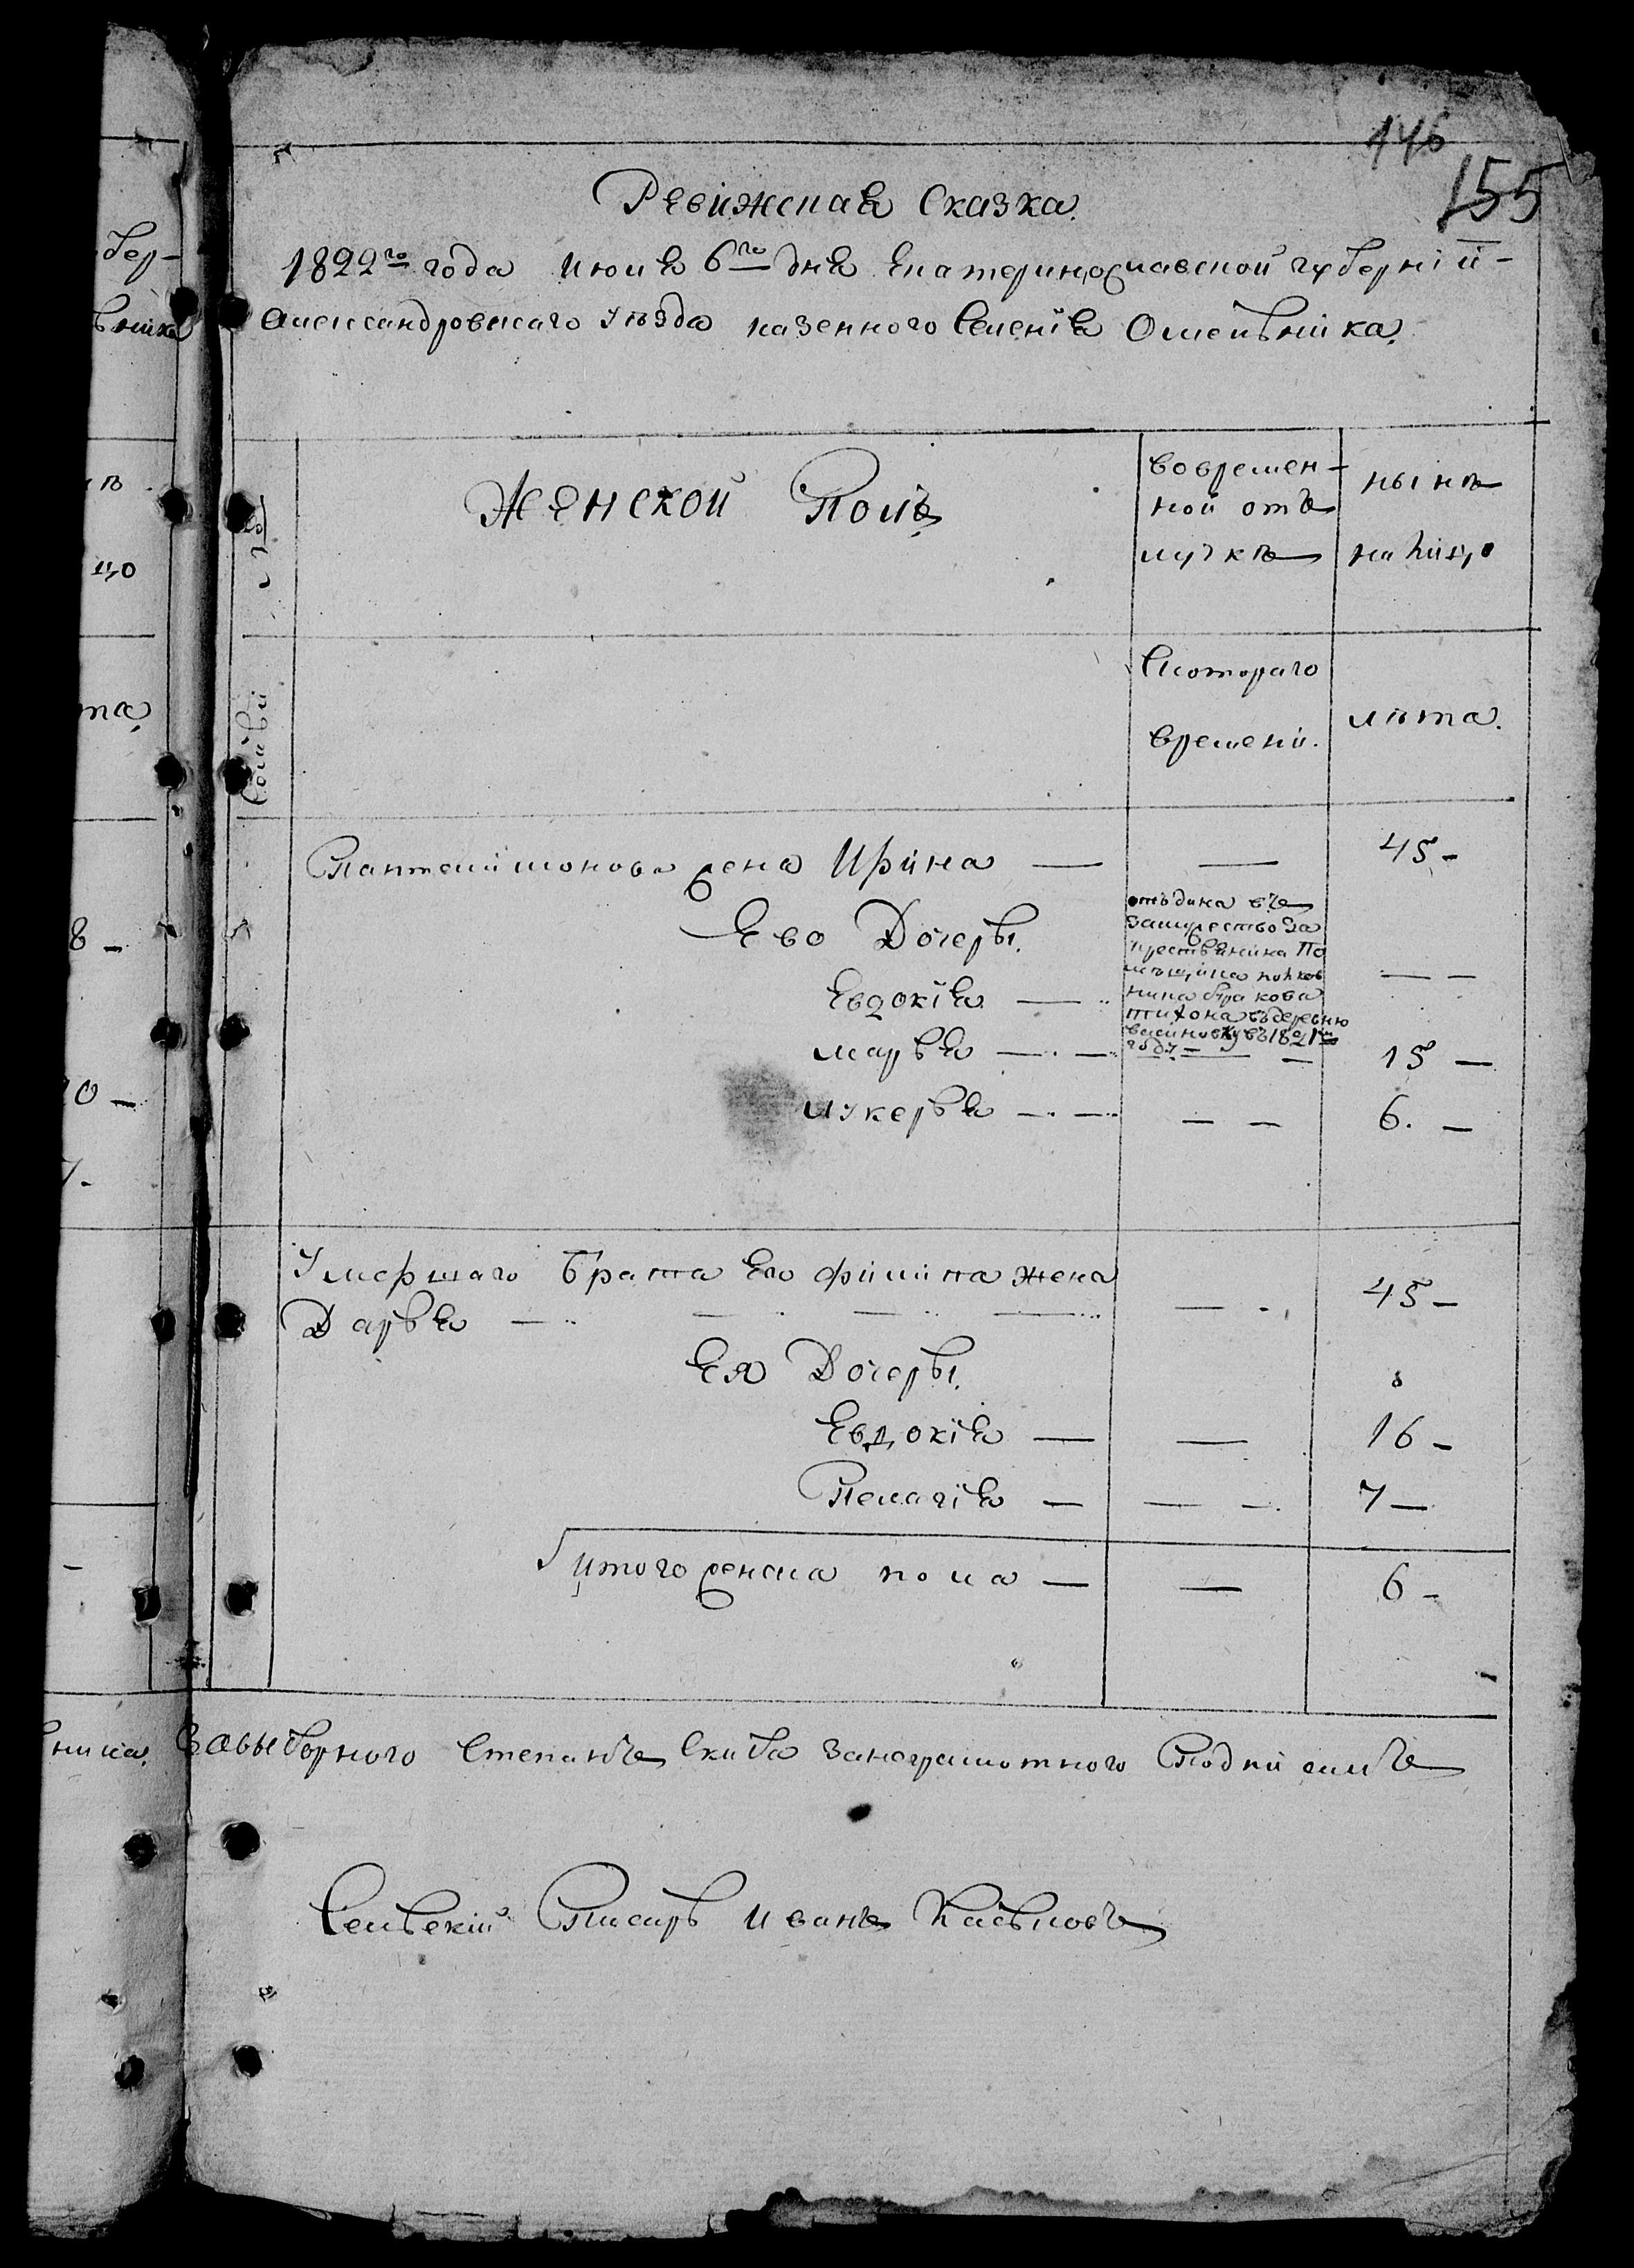 146
155
Ревижская Сказка.
1822го года Июля 6го дня Екатеринославской губерніи
Александровскаго Уѣзда казенного Селенія Омельника.
Женской Полъ
вовремен-
ной отъ
лучкѣ
нынѣ
на лицо
Скотораго
времени.
лѣта.
Пантелимонова жена Ирина — — 45 -
Ево Дочеры.
отъдана въ
замужество за
крестьянина По
мѣщика полков
ника
Тихона въдеревню
въ 1821м
году -
Евдокія — — —
марья — — 15 —
лукерья — — — 6. —
Умершаго Брата Его филипа жена
Дарья — — — — 45 -
Ея Дочеры.
Евдокія — — 16 -
Пелагія — — — 7 —
итого женска пола — — 6 -
Завыборного Степанъ Скиба Занеграмотного Подписалъ
Сельскій Писарь Иванъ
бер-
ьника
ло
та
8 -
0 —
7.
ника.